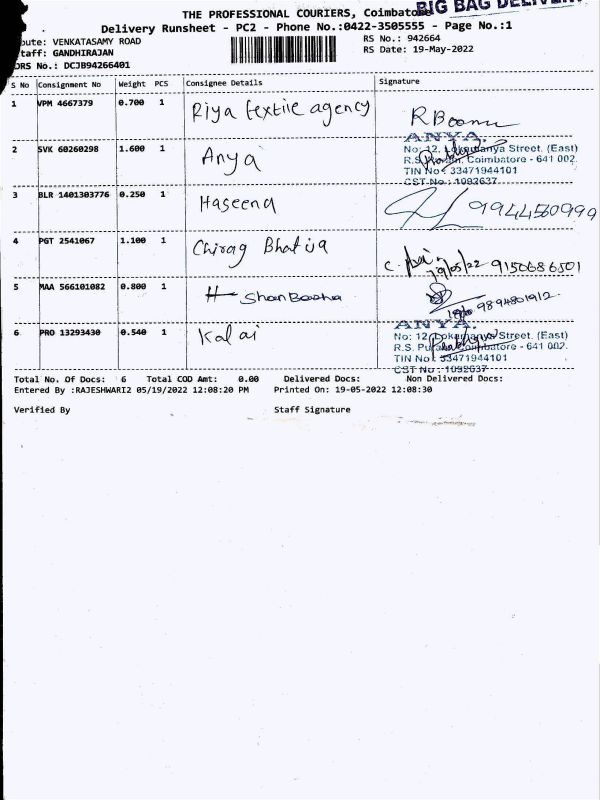 THE PROFESSIONAL COURIERS, Coimbatore
BIG BAG DELIVERY
Delivery Runsheet - PC2 - Phone No.:0422-3505555 - Page No.:1
oute: VENKATASAMY ROAD
RS No.: 942664
taff: GANDHIRAJAN
RS Date: 19-May-2022
DRS No.: DCJB94266401
S No Consignment No Weight PCS Consignee Details Signature
1 VPM 4667379 0.700 1 Riya textile agency
2 SVK 60260298 1.600 1 Anya
ANYA.
No: 12, Lokamanya Street. (East)
R.S. Puram, Coimbatore - 641 002.
TIN No : 33471944101
CST No : 1092637
3 BLR 1401303776 0.250 1 Haseena 9944560999
4 PGT 2541067 1.100 1 Chirag Bhatia
19/05/22 9150686501
5 MAA 566101082 0.800 1 H Shan Baasha
9894801912
6 PRO 13293430 0.540 1 Kalai
ANYA.
No: 12, Lokamanya Street. (East)
R.S. Puram, Coimbatore - 641 002.
TIN No : 33471944101
CST No : 1092637
Total No. Of Docs: 6 Total COD Amt: 0.00 Delivered Docs: Non Delivered Docs:
Entered By :RAJESHWARI2 05/19/2022 12:08:20 PM Printed On: 19-05-2022 12:08:30
Verified By Staff Signature